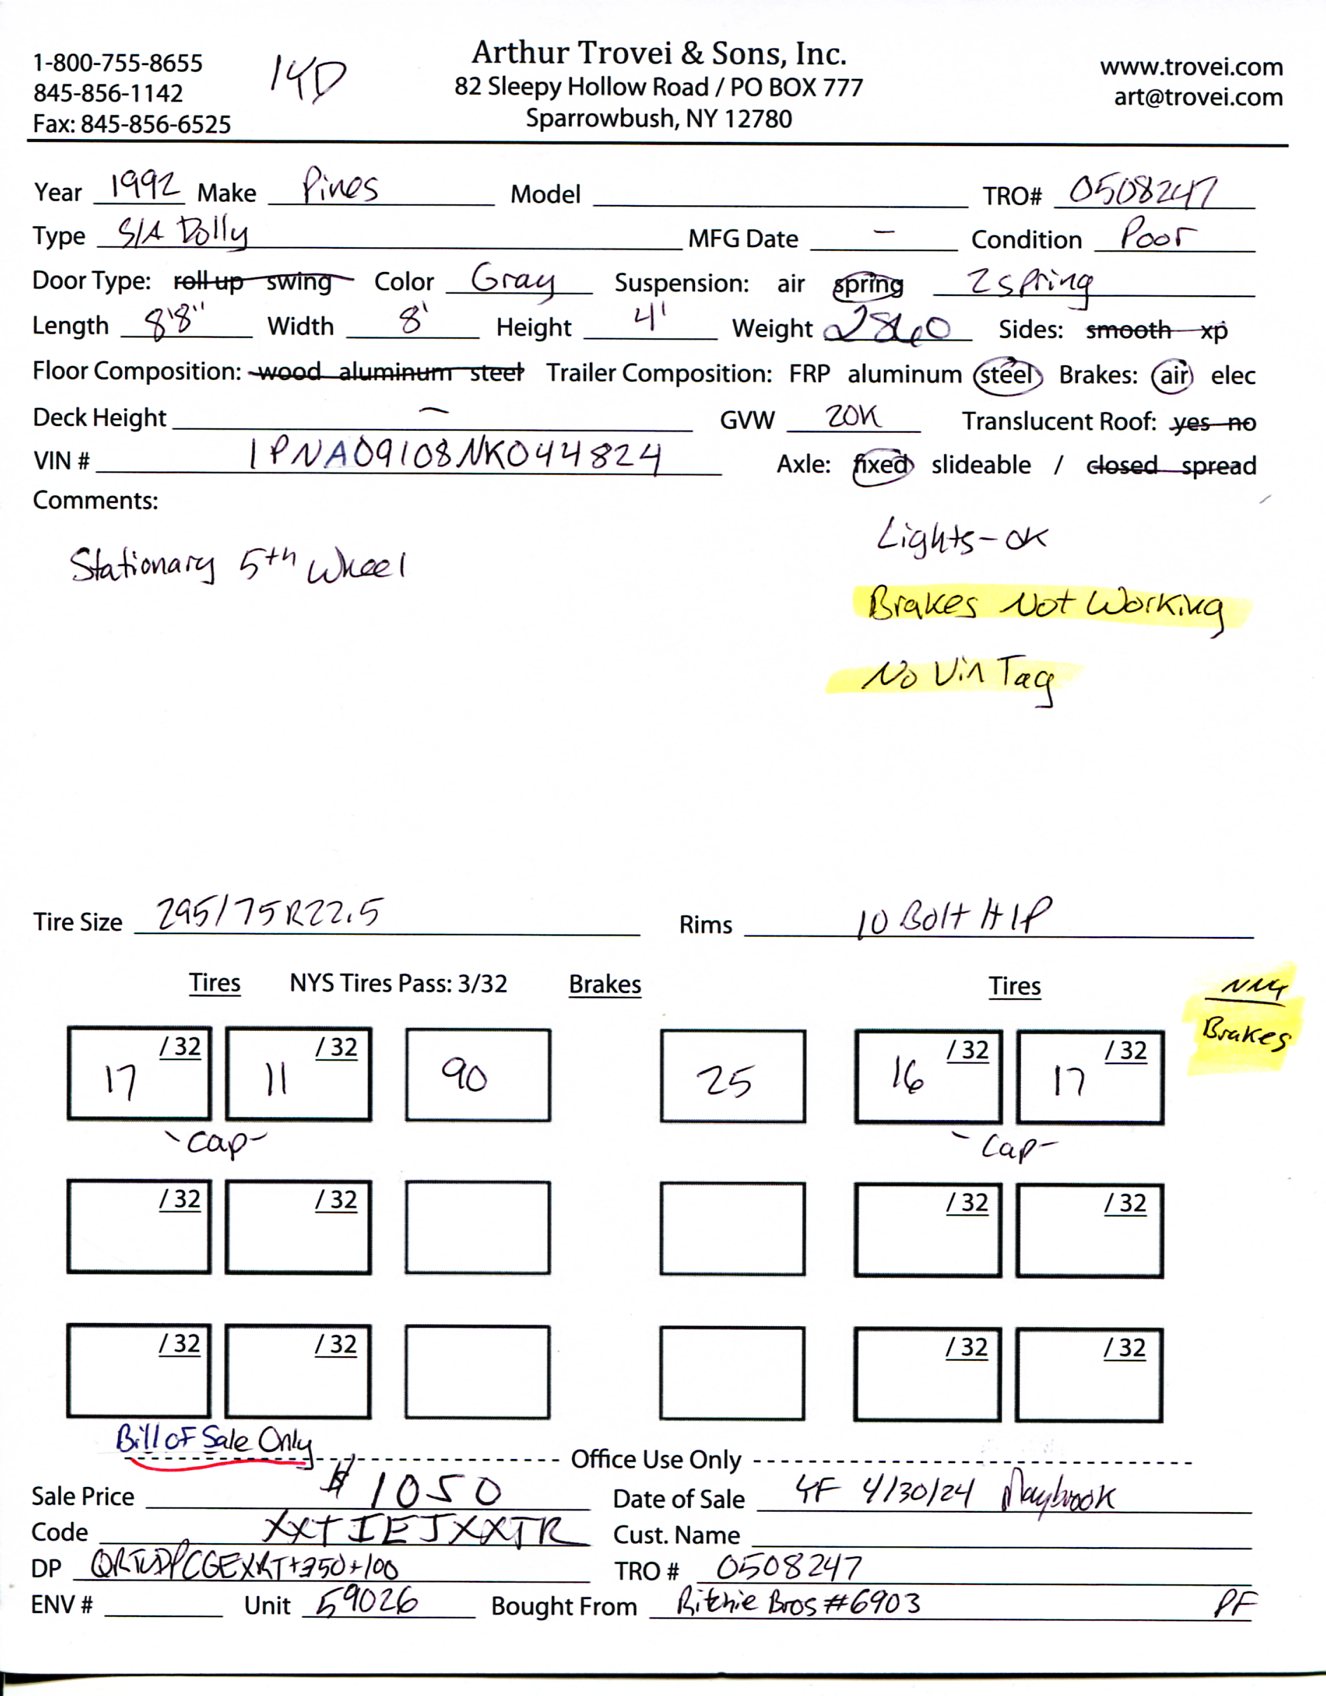 1-800-755-8655
845-856-1142
Fax: 845-856-6525
14D
Arthur Trovei & Sons, Inc.
82 Sleepy Hollow Road / PO BOX 777
Sparrowbush, NY 12780
www.trovei.com
art@trovei.com
Year 1992 Make Pines Model TRO# 0508247
Type S/A Dolly MFG Date — Condition Poor
Door Type: roll up swing Color Gray Suspension: air spring 2 spring
Length 8'8" Width 8' Height 4' Weight 2860 Sides: smooth xp
Floor Composition: wood aluminum steel Trailer Composition: FRP aluminum steel Brakes: air elec
Deck Height — GVW 20K Translucent Roof: yes no
VIN # 1PNA09108NK044824 Axle: fixed slideable / closed spread
Comments:
Stationary 5th Wheel
Lights-OK
Brakes Not Working
No Vin Tag
Tire Size 295/75R22.5 Rims 10 Bolt HP
Tires NYS Tires Pass: 3/32 Brakes Tires
Brakes
17 /32 11 /32 90 25 16 /32 17 /32
-Cap- -Cap-
/32 /32 /32 /32
/32 /32 /32 /32
Bill of Sale Only
Office Use Only
Sale Price $1050 Date of Sale 4/30/24 Maybrook
Code XXTIEJXXTR Cust. Name
DP +350+100 TRO # 0508247
ENV # Unit 59026 Bought From Ritchie Bros #6903 PF